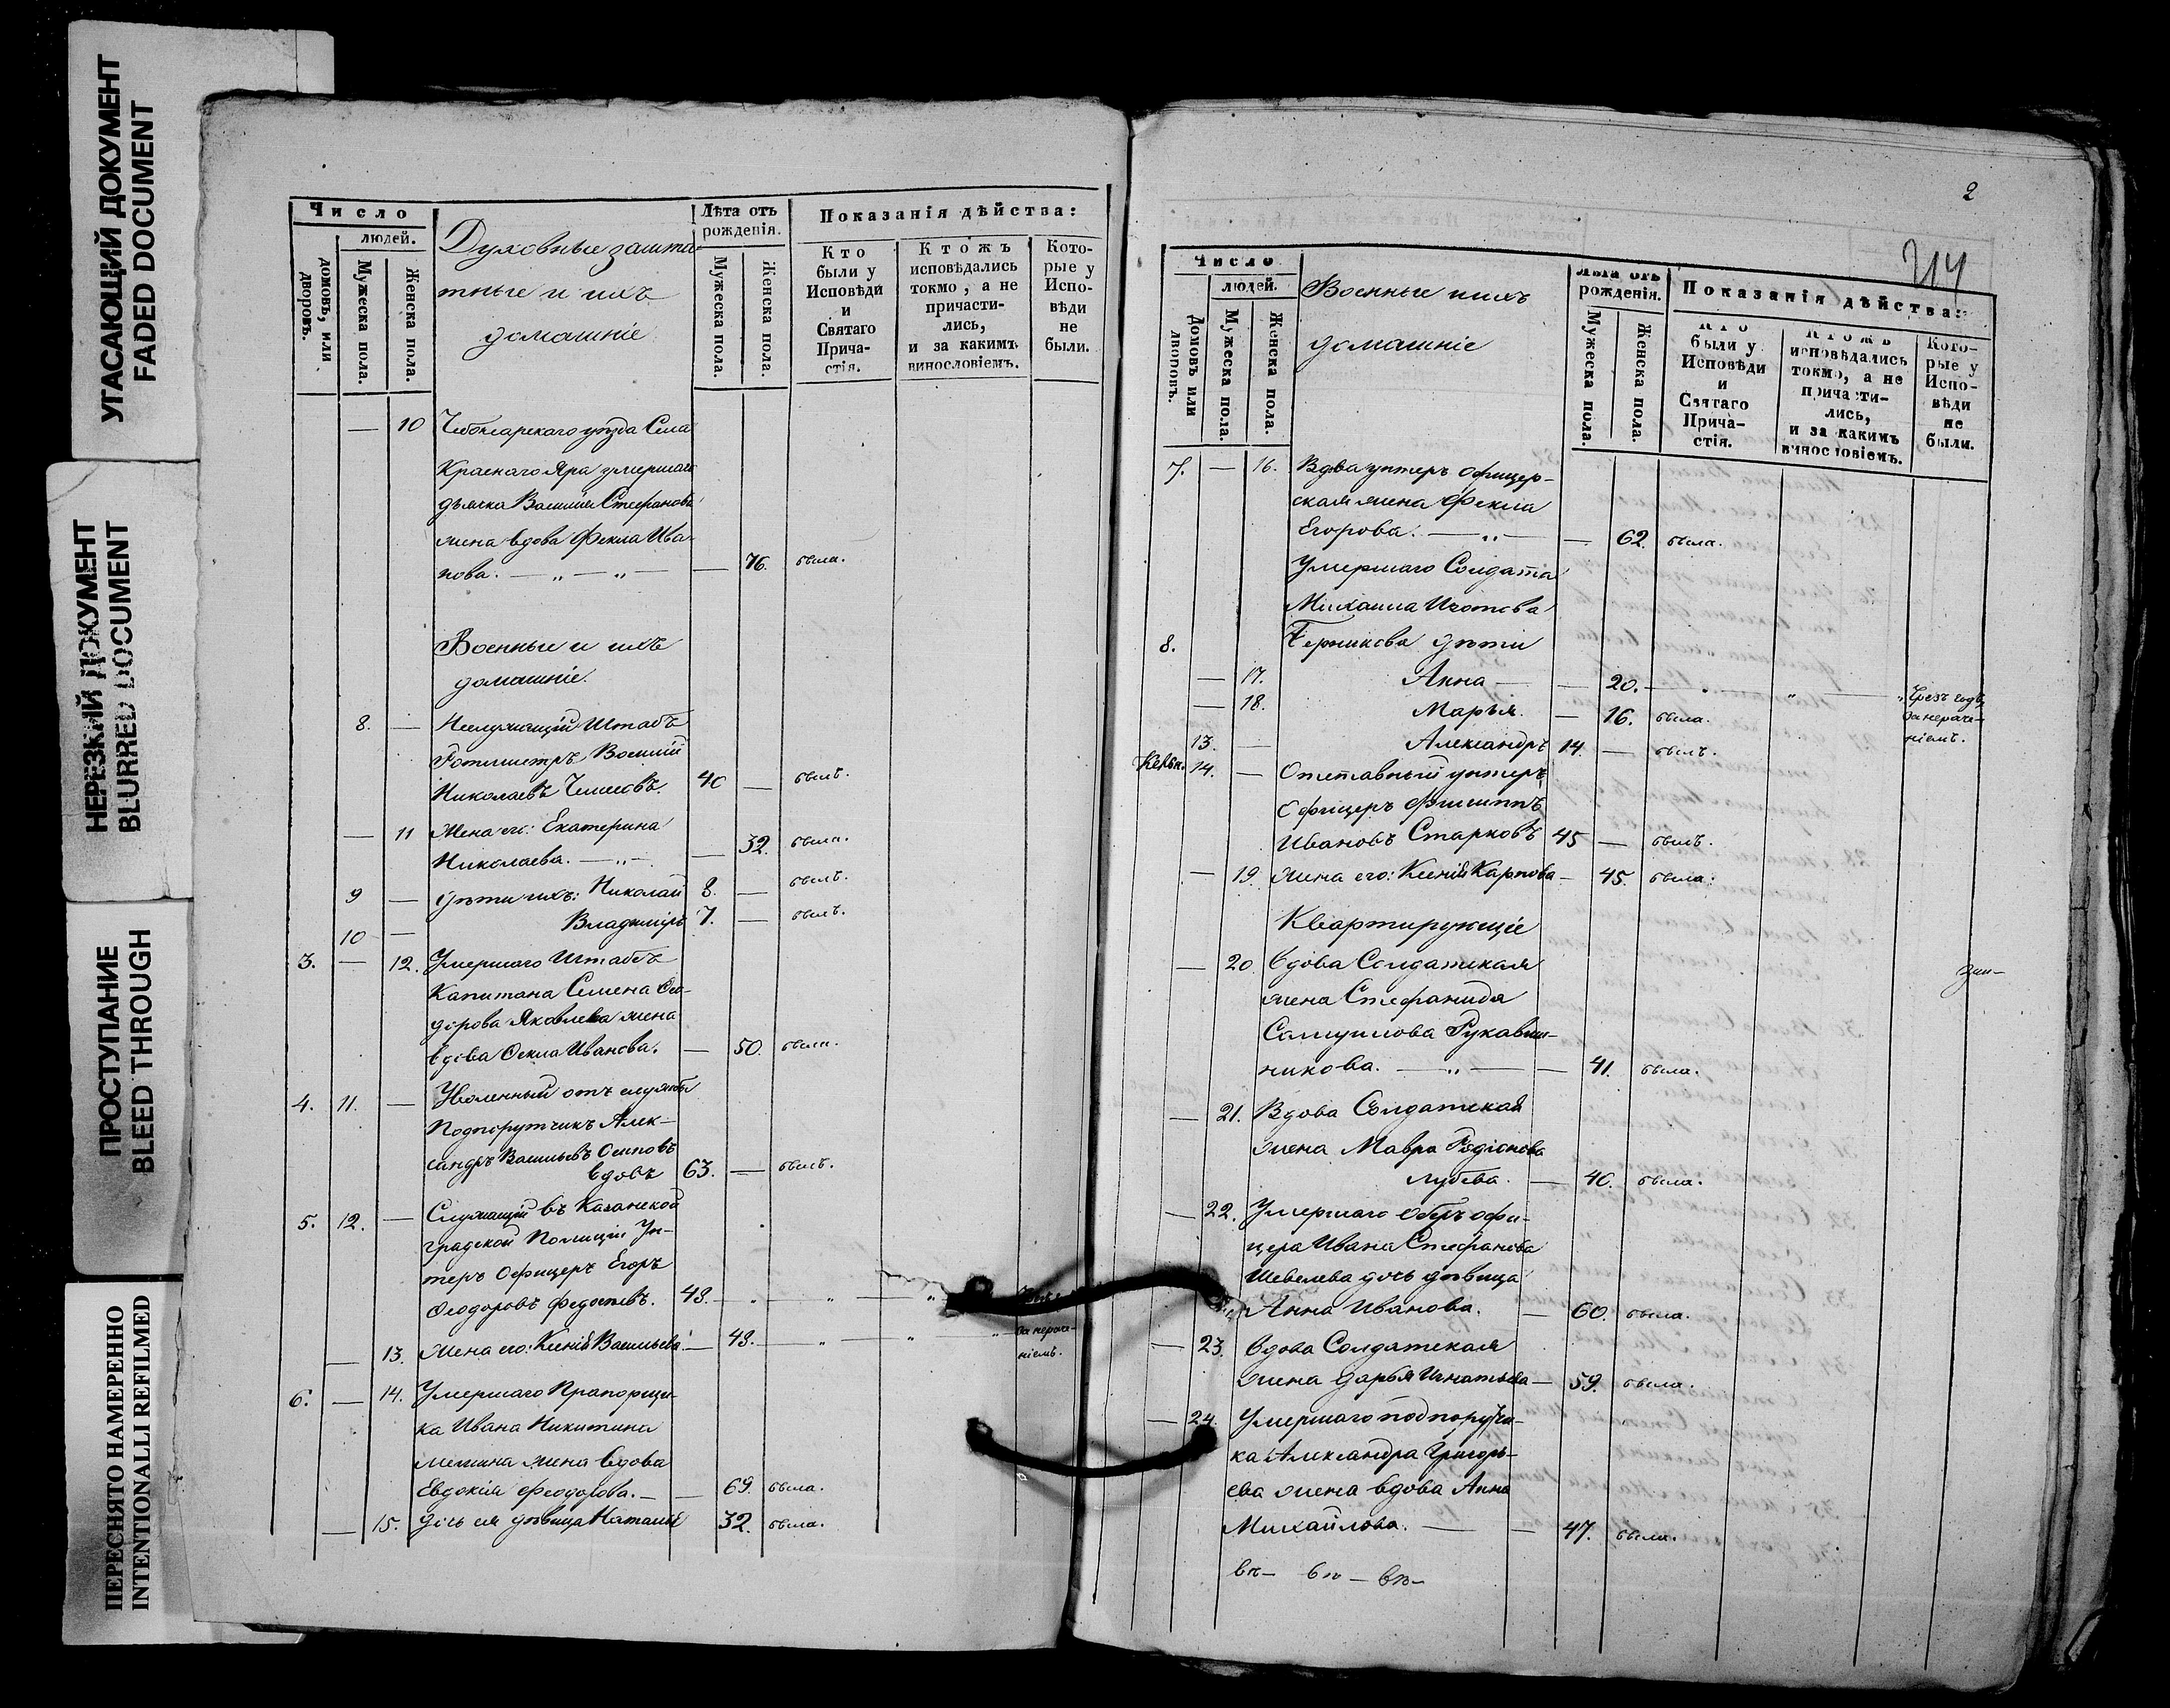 УГАСАЮЩИЙ ДОКУМЕНТ
FADED DOCUMENT
НЕРЕЗКИЙ ДОКУМЕНТ
BLURRED DOCUMENT
ПРОСТУПАНИЕ
BLEED THROUGH
ПЕРЕСНЯТО НАМЕРЕННО
INTENTIONALLI REFILMED
Число
людей.
домовъ, или дворовъ.
Мужеска пола.
Женска пола.
Духовные зашта-
тные и ихъ
домашніе
Лѣта отъ рожденія.
Мужеска пола.
Женска пола.
Показанія дѣйства:
Кто были у Исповѣди и Святаго Прича-стія.
Ктожъ исповѣдались токмо, а не причасти-лись, и за какимъ винословіемъ.
Кото-рые у Испо-вѣди не были.
— 10 Чебоксарскаго уѣзда Села
Краснаго Яра умершаго
дьячка Василія Стефанова
жена вдова Фекла Ива-
нова. — „ — „ — — 76. была.
Военные и ихъ
домашніе.
8. — Неслужащій Штабъ
Ротмистръ Василій
Николаевъ 40 — былъ.
— 11 Жена его: Екатерина
Николаева. — „ — — 32. была.
9 — Дѣти ихъ: Николай 8. — былъ.
10 — Владиміръ 7. — былъ.
3. — 12. Умершаго Штабсъ
Капитана Семена Ѳео-
дорова Яковлева жена
вдова Ѳекла Иванова. — 50. была.
4. 11. — Уволенный отъ службы
Подпоручикъ Алек-
сандръ Васильевъ Осиповъ
вдовъ 63. — былъ.
5. 12. — Служащій въ Казанской
градской Полиціи Ун-
теръ Офицеръ Егоръ
Ѳеодоровъ Федосѣевъ. 48. — „ — „ — „
— 13. Жена его: Ксенія Васильева — 48. — „ — „ — „ за нераче-
ніемъ.
6. — 14. Умершаго Прапорщи-
ка Ивана Никитина
жена вдова
Евдокія Феодорова. — — 69. была.
— 15. Дочь ея дѣвица Наталія 32. была.
2
214
Число
людей.
Домовъ или дворовъ.
Мужеска пола.
Женска пола.
Военные и ихъ
домашніе
Лѣта отъ рожденія.
Мужеска пола.
Женска пола.
Показанія дѣйства:
Кто были у Исповѣди и Святаго Прича-стія.
Ктожъ исповѣдались токмо, а не причасти-лись, и за какимъ винословіемъ.
Кото-рые у Испо-вѣди не были.
7. — 16. Вдва унтеръ офицер-
ская жена Фекла
Егорова. — „ — — 62. была.
Умершаго Солдата
Михаила
8. дѣти
— 17. Анна — — 20. — „ — „ — „ Чрезъ годъ
— 18. Марья. — 16. была. за нераче-
ніемъ.
13. — Александръ 14. — былъ.
14. — Отставный унтеръ
Офицеръ Филиппъ
Ивановъ Старковъ 45 — былъ.
— 19. Жена его: Ксенія Карпова — 45. была.
Квартирующіе
— 20 Вдова Солдатская
жена Стефанида
Самуилова Рукавиш-
никова. — „ — — 41. была.
— 21. Вдова Солдатская
жена Мавра Родіонова
— 40. была.
— 22. Умершаго Оберъ офи-
цера Ивана Стефанова
Шевелева дочь дѣвица
Анна Иванова. — 60. была.
— 23. Вдова Солдатская
жена Дарья Игнатьева — 59. была.
— 24. Умершаго подпоручи-
ка Александра Григорь-
ева жена вдова Анна
Михайлова. — — 47. была.